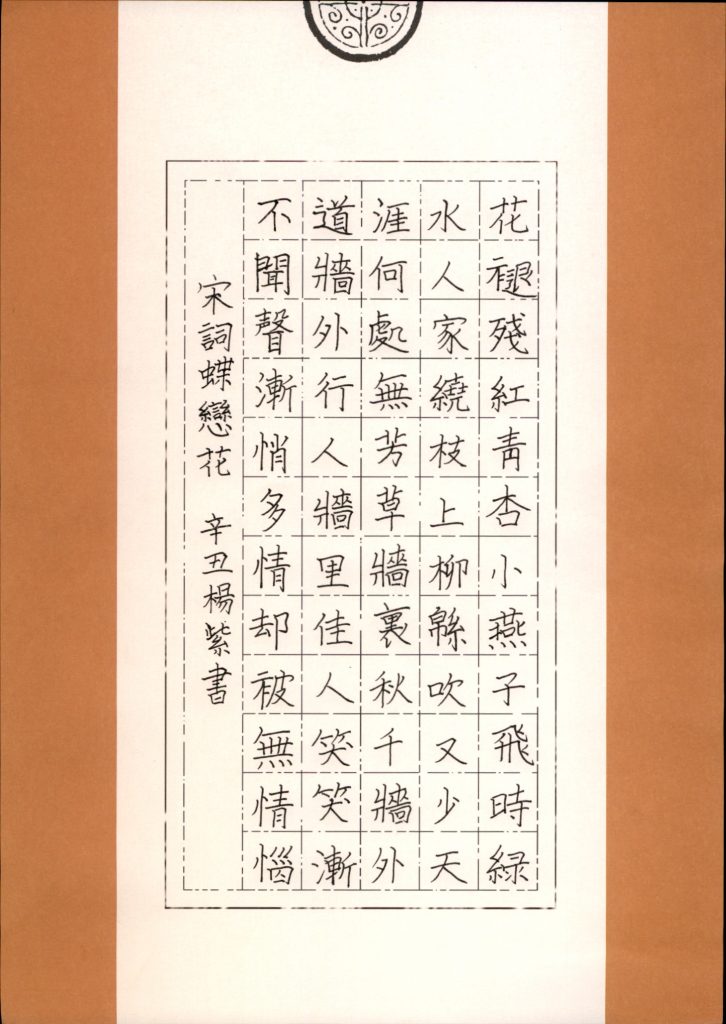 花褪殘紅青杏小燕子飛時緑
水人家繞枝上柳緜吹又少天
涯何處無芳草牆裏秋千牆外
道牆外行人牆里佳人笑笑漸
不聞聲漸悄多情却被無情惱
宋詞蝶戀花 辛丑楊紫書